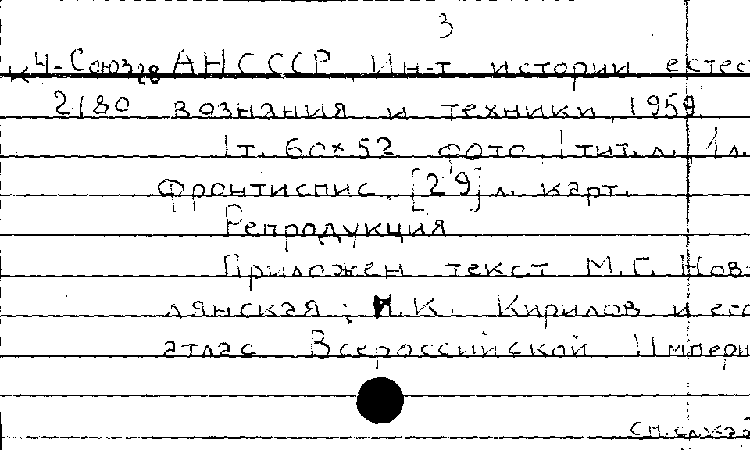 3
К4-Союз28 АНСССР. Ин-т истории естес
2180 вознания и техники, 1959
1т. 60×52 фото. 1 тит. л., 1 л.
фронтиспис. [29] л. карт.
Репродукция
Приложен текст М.Г. Нов
лянская: И.К. Кирилов и его
атлас Всероссийской Импери
См. след